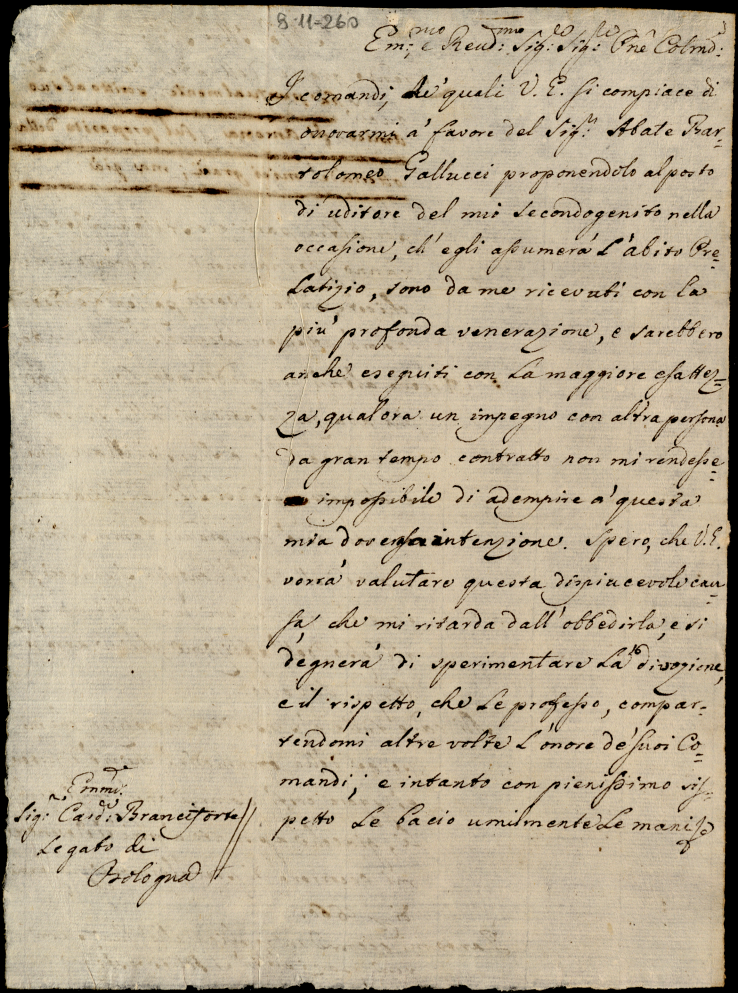 8-11-260
Em:mo e Reud:mo Sig:re Sig:re Pne Colmo:
I comandi, de' quali V. E. si compiace di
onorarmi a' favore del Sig:r Abate Bar-
tolomeo Gallucci proponendolo al posto
di uditore del mio secondogenito nella
occasione, ch' egli assumerà l'abito Pre-
latizio, sono da me ricevuti con la
più profonda venerazione, e sarebbero
anche eseguiti con la maggiore esattez-
za, qualora un impegno con altra persona
da gran tempo contratto non mi rendesse-
impossibile di adempire a' questa
mia doverosa intenzione. Spero, che V. E.
vorrà valutare questa dispiacevole cau-
sa, che mi ritarda dall' obbedirla, e si
degnerà di sperimentare la divozione,
e il rispetto, che le professo, compar-
tendomi altre volte l'onore de' suoi Co-
mandi; e intanto con pienissimo ris-
petto le bacio umilmente le mani
Emmo:
Sig:r Card: Branciforte
Legato di
Bologna